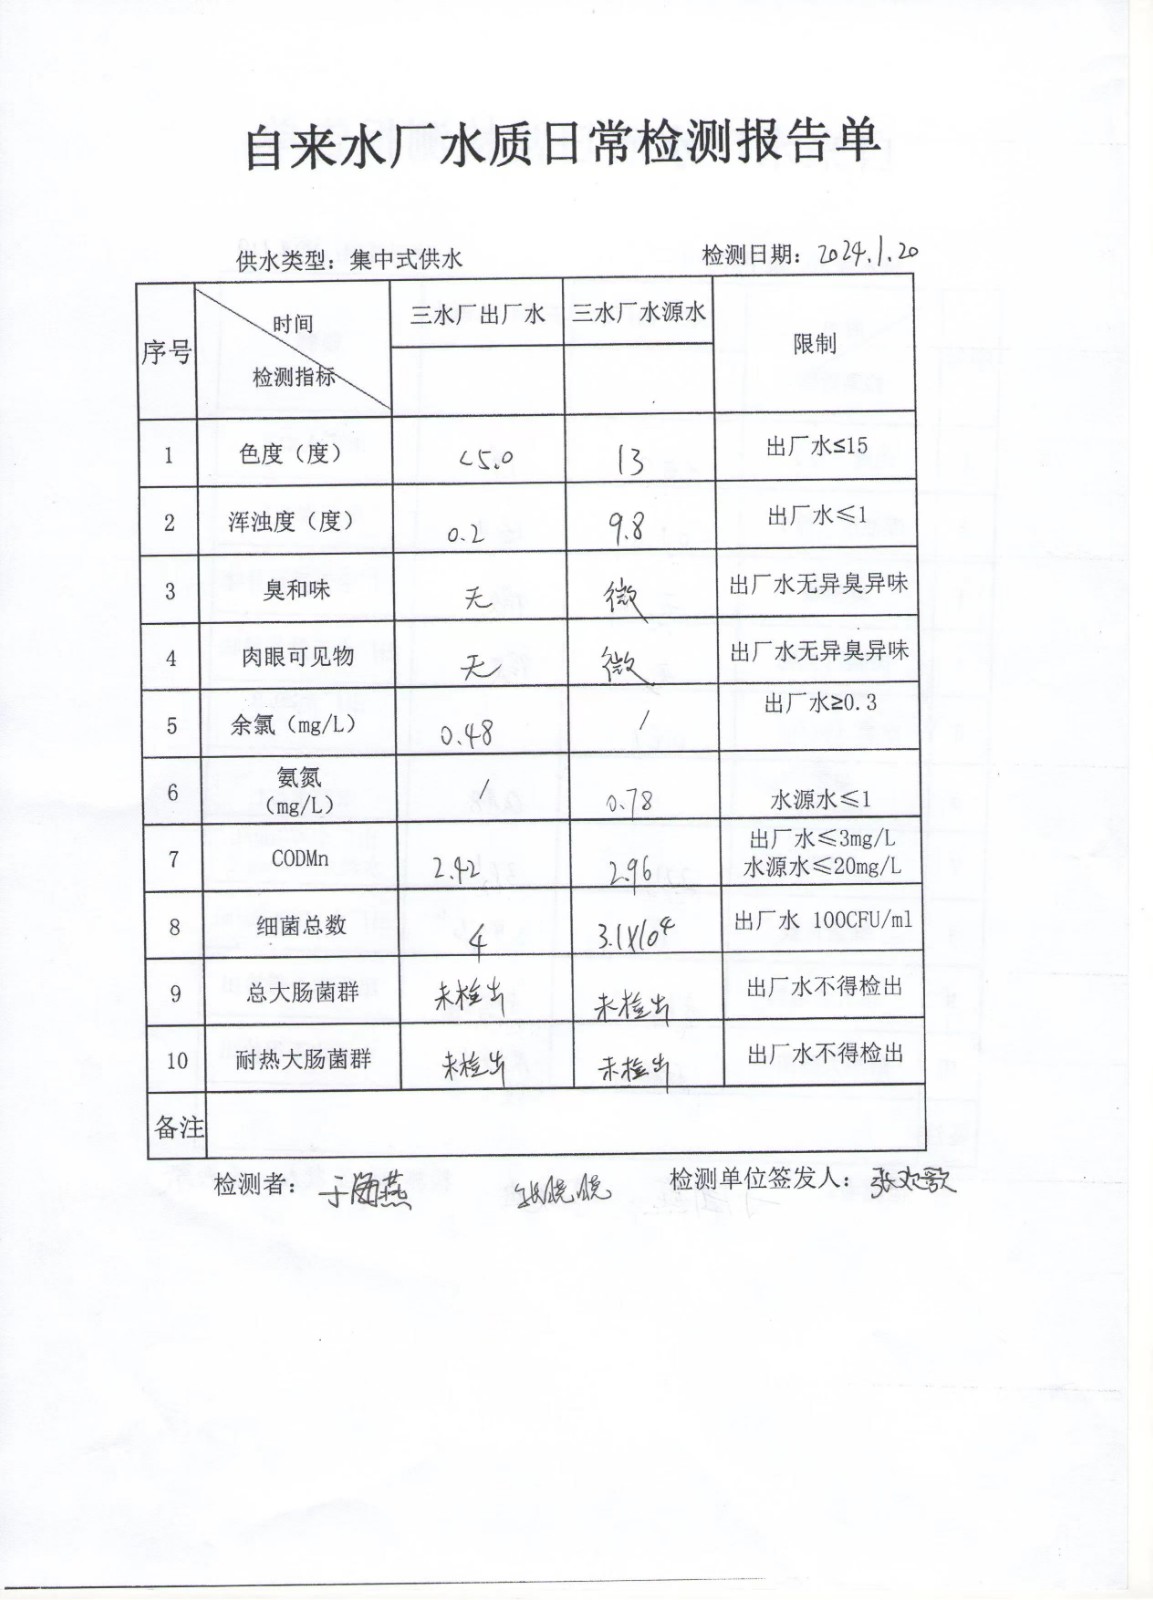 自来水厂水质日常检测报告单
供水类型：集中式供水 检测日期：2024.1.20
序号 时间 检测指标 三水厂出厂水 三水厂水源水 限制
1 色度（度） <5.0 13 出厂水≤15
2 浑浊度（度） 0.2 9.8 出厂水≤1
3 臭和味 无 微 出厂水无异臭异味
4 肉眼可见物 无 微 出厂水无异臭异味
5 余氯（mg/L） 0.48 / 出厂水≥0.3
6 氨氮 / 0.78 水源水≤1
（mg/L）
7 CODMn 2.42 2.96 出厂水≤3mg/L
水源水≤20mg/L
8 细菌总数 4 3.1×10⁴ 出厂水 100CFU/ml
9 总大肠菌群 未检出 未检出 出厂水不得检出
10 耐热大肠菌群 未检出 未检出 出厂水不得检出
备注
检测者：于海燕 张晓晓 检测单位签发人：张欢歌